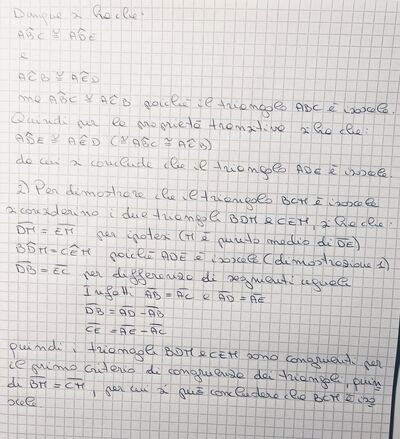 Dunque si ha che:
AB̂C ≅ AD̂E
e
AĈB ≅ AÊD
ma AB̂C ≅ AĈB poichè il triangolo ABC è isoscele.
Quindi per la proprietà transitiva si ha che:
AD̂E ≅ AÊD (≅ AB̂C ≅ AĈB)
da cui si conclude che il triangolo ADE è isoscele.
2) Per dimostrare che il triangolo BCM è isoscele
si considerino i due triangoli BDM e CEM, si ha che:
DM = EM per ipotesi (M è punto medio di DE)
BD̂M = CÊM poichè ADE è isoscele (dimostrazione 1)
DB = EC per differenza di segmenti uguali
Infatti AB = AC e AD = AE
DB = AD - AB
CE = AE - AC
quindi i triangoli BDM e CEM sono congruenti per
il primo criterio di congruenza dei triangoli, quin
di BM = CM, per cui si può concludere che BCM è iso
scele